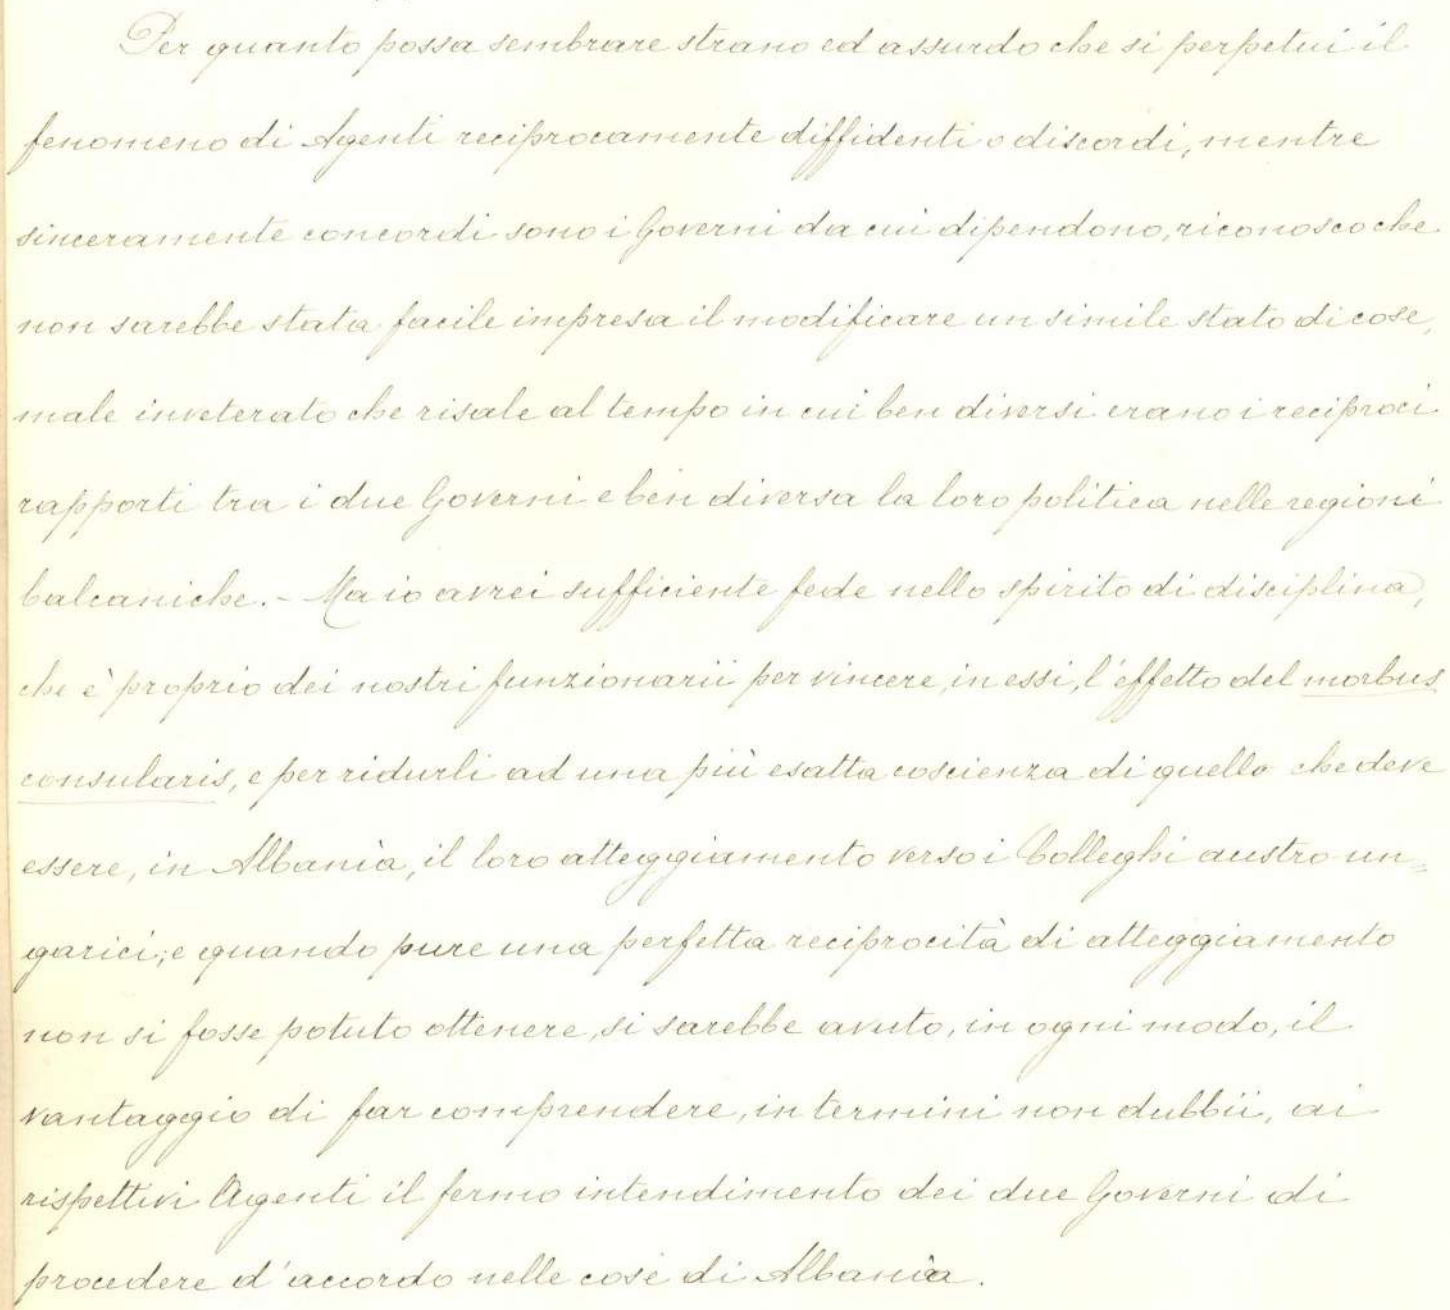 Per quanto possa sembrare strano ed assurdo che si perpetui il
fenomeno di Agenti reciprocamente diffidenti o discordi, mentre
sinceramente concordi sono i Governi da cui dipendono, riconosco che
non sarebbe stata facile impresa il modificare un simile stato di cose,
male inveterato che risale al tempo in cui ben diversi erano i reciproci
rapporti tra i due Governi e ben diversa la loro politica nelle regioni
balcaniche. - Ma io avrei sufficiente fede nello spirito di disciplina,
che è proprio dei nostri funzionarii per vincere, in essi, l'effetto del morbus
consularis, e per ridurli ad una più esatta coscienza di quello che deve
essere, in Albania, il loro atteggiamento verso i Colleghi austro-un=
garici; e quando pure una perfetta reciprocità di atteggiamento
non si fosse potuto ottenere, si sarebbe avuto, in ogni modo, il
vantaggio di far comprendere, in termini non dubbii, ai
rispettivi Agenti il fermo intendimento dei due Governi di
procedere d'accordo nelle cose di Albania.